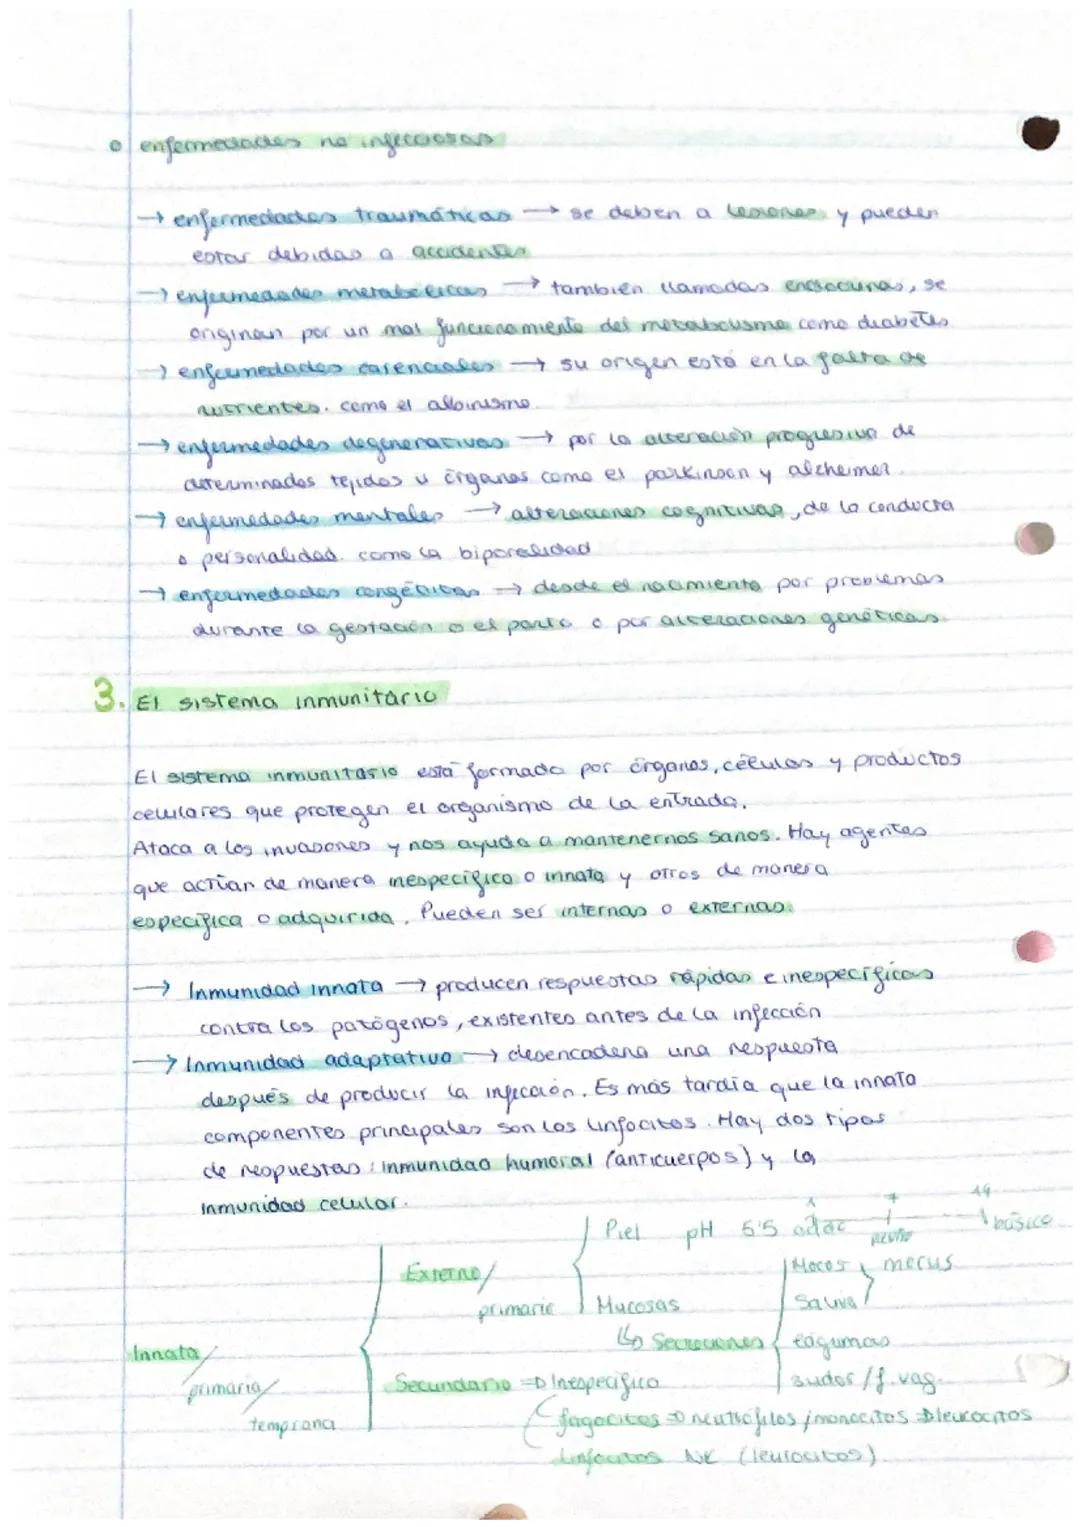 o enfermedades no infecciosas
→ enfermedades traumáticas → se deben a lesiones y pueden
estar debidas a accidentes
→ enfermedades metabólicas → también llamadas endocrinas, se
originan por un mal funcionamiento del metabolismo como diabetes
→ enfermedades carenciales → su origen está en la falta de
nutrientes. como el albinismo.
→ enfermedades degenerativas → por la alteración progresiva de
determinados tejidos u órganos como el parkinson y alzheimer.
→ enfermedades mentales → alteraciones cognitivas, de la conducta
o personalidad. como la biporalidad
→ enfermedades congénitas → desde el nacimiento por problemas
durante la gestación o el parto o por alteraciones genéticas.
3. El sistema inmunitario
El sistema inmunitario está formado por órganos, células y productos
celulares que protegen el organismo de la entrada.
Ataca a los invasores y nos ayuda a mantenernos sanos. Hay agentes
que actúan de manera inespecífica o innata y otros de manera
específica o adquirida. Pueden ser internas o externas.
→ Inmunidad innata → producen respuestas rápidas e inespecíficas
contra los patógenos, existentes antes de la infección
→ Inmunidad adaptativa → desencadena una respuesta
después de producir la infección. Es más tardía que la innata
componentes principales son los linfocitos. Hay dos tipos
de respuestas: inmunidad humoral (anticuerpos) y la
inmunidad celular.
1 7 14
Piel pH 5'5 neutro básico
Externo/ primaria
Mocos Saliva
Mucosas
↳ Secreciones
lágrimas
sudor / f. vag.
Innata/ primaria/ temprana
Secundario ⇒ Inespecífica
fagocitos ⇒ neutrófilos / monocitos ⇒ leucocitos
Linfocitos NK (leucocitos).